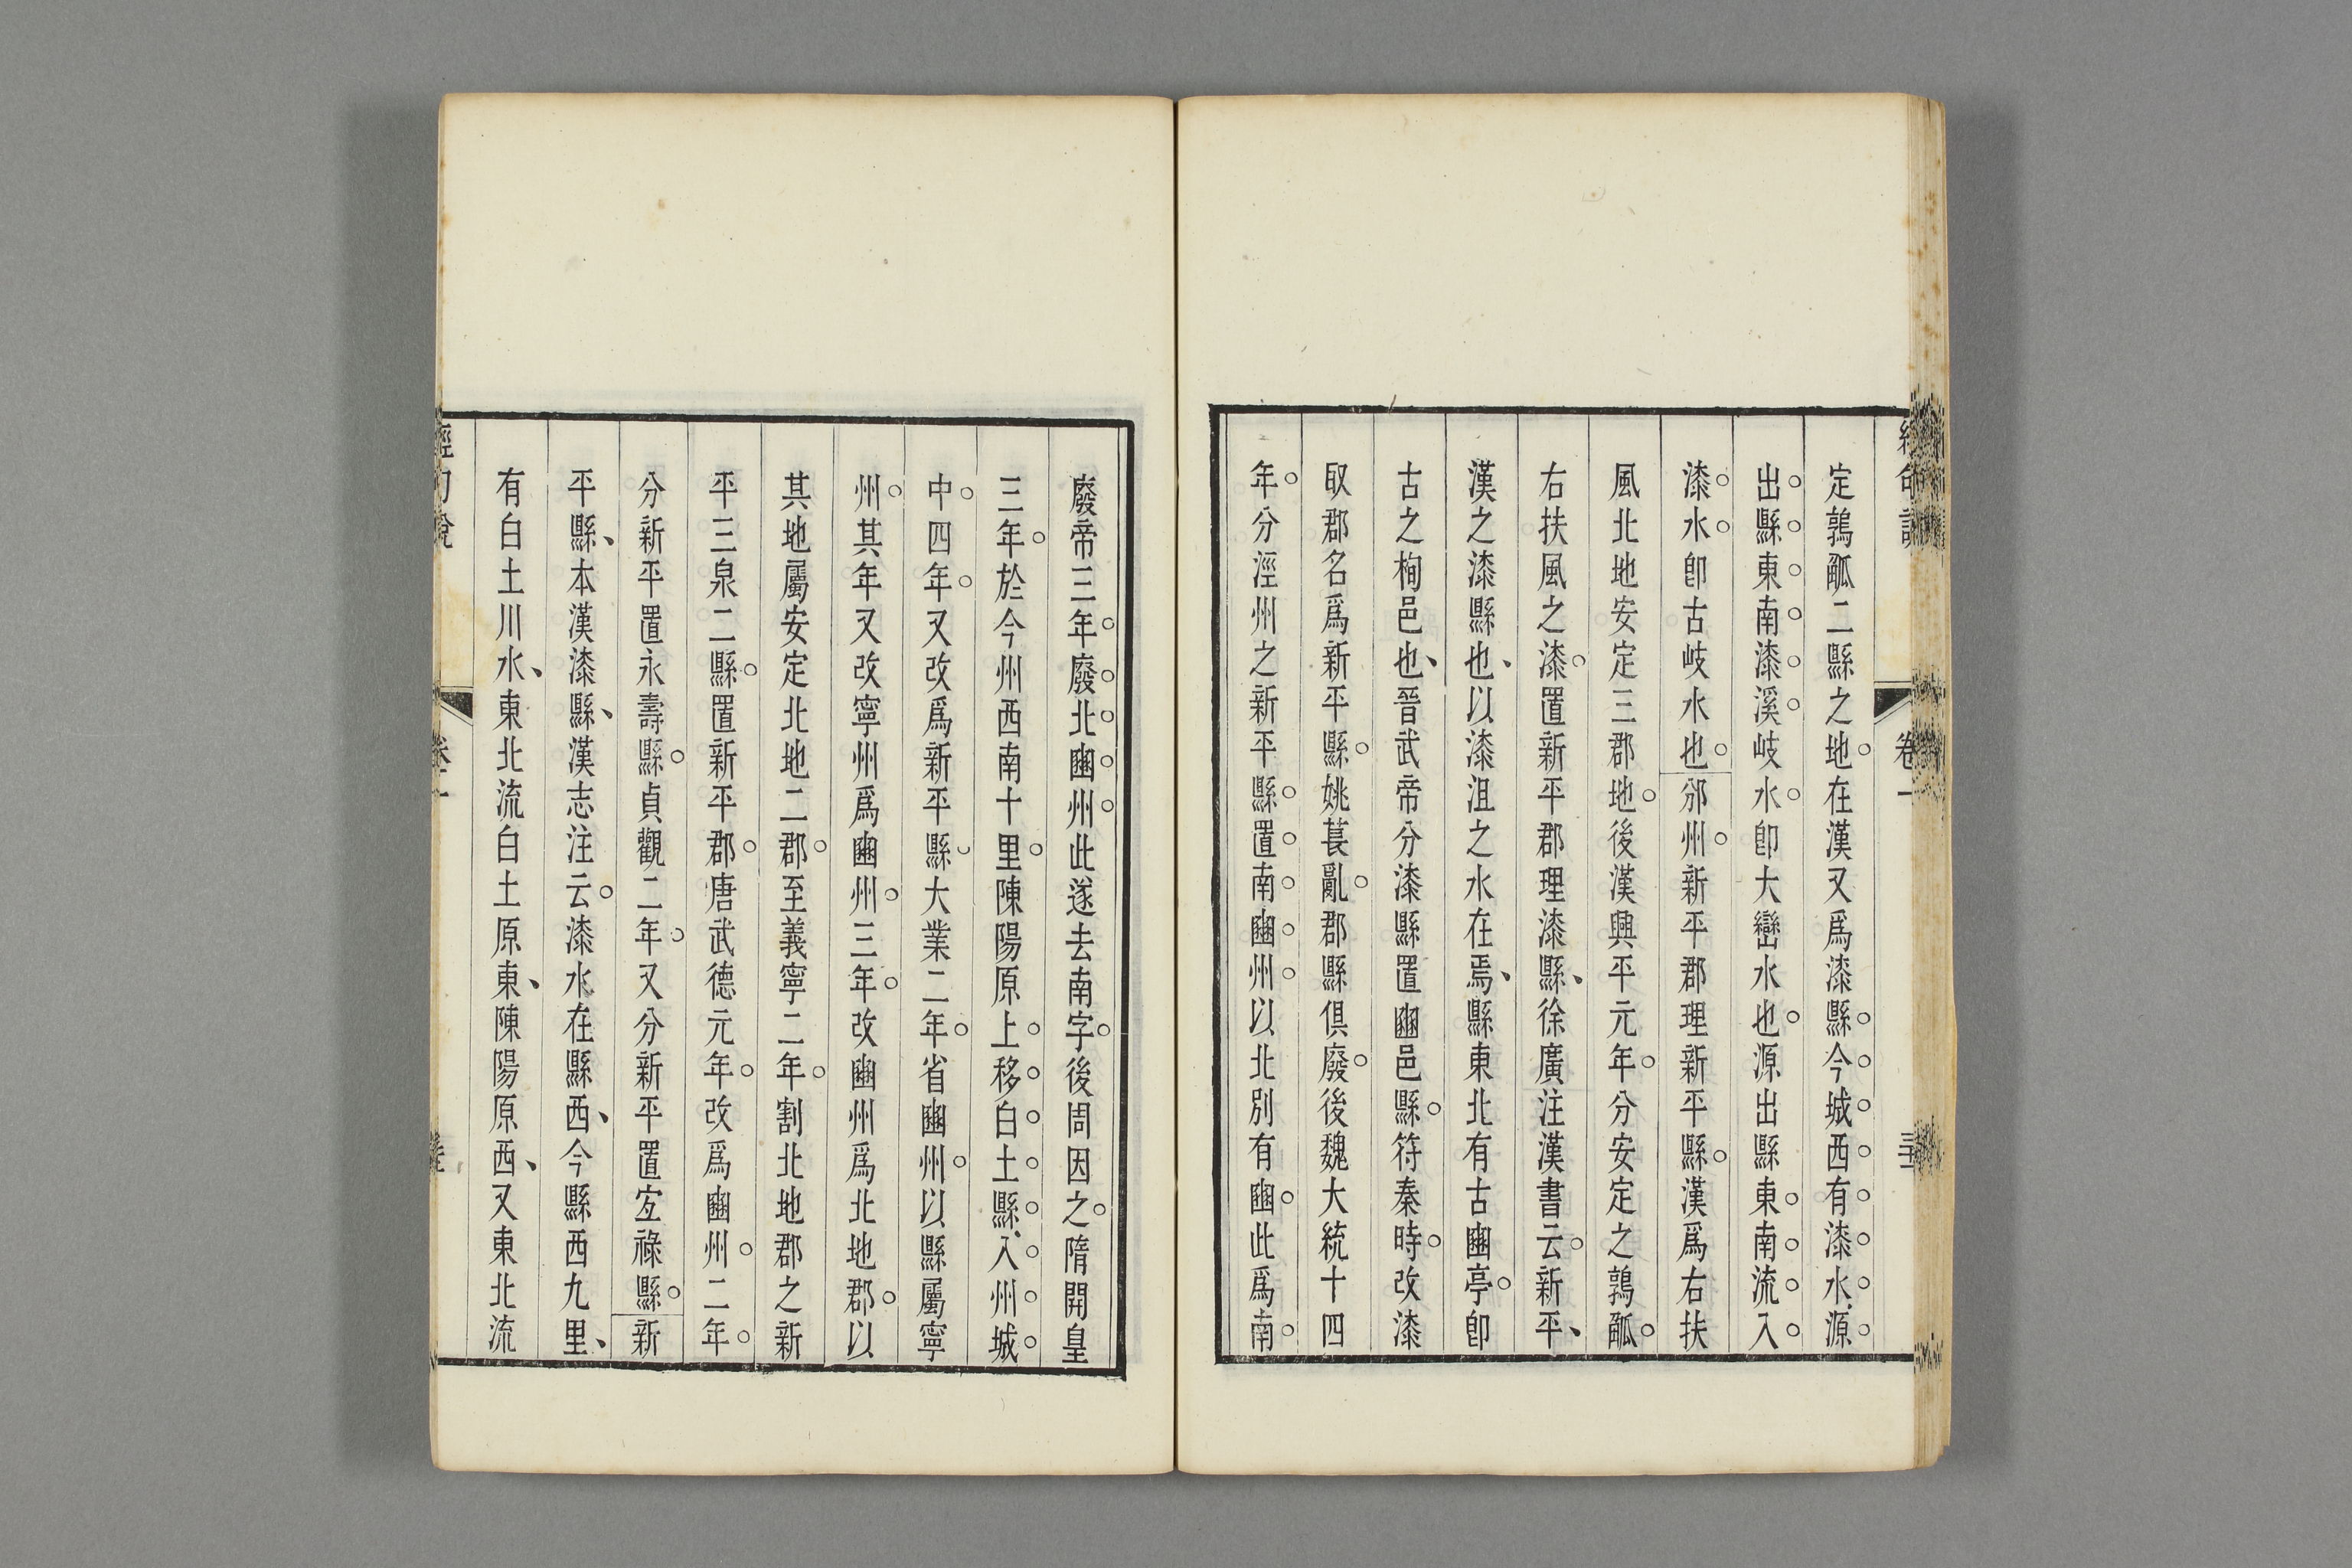 定鶉觚二縣之地在漢又爲漆縣今城西有漆水源
出縣東南漆溪岐水卽大巒水也源出縣東南流入
漆水卽古岐水也邠州新平郡理新平縣漢爲右扶
風北地安定三郡地後漢興平元年分安定之鶉觚
右扶風之漆置新平郡理漆縣徐廣注漢書云新平
漢之漆縣也以漆沮之水在焉縣東北有古豳亭卽
古之栒邑也晉武帝分漆縣置豳邑縣符秦時改漆
取郡名爲新平縣姚萇亂郡縣俱廢後魏大統十四
年分涇州之新平縣置南豳州以北別有豳此爲南
廢帝三年廢北豳州此遂去南字後周因之隋開皇
三年於今州西南十里陳陽原上移白土縣入州城
中四年又改爲新平縣大業二年省豳州以縣屬寧
州其年又改寧州爲豳州三年改豳州爲北地郡以
其地屬安定北地二郡至義寧二年割北地郡之新
平三泉二縣置新平郡唐武德元年改爲豳州二年
分新平置永壽縣貞觀二年又分新平置宜祿縣新
平縣本漢漆縣漢志注云漆水在縣西今縣西九里
有白土川水東北流白土原東陳陽原西又東北流